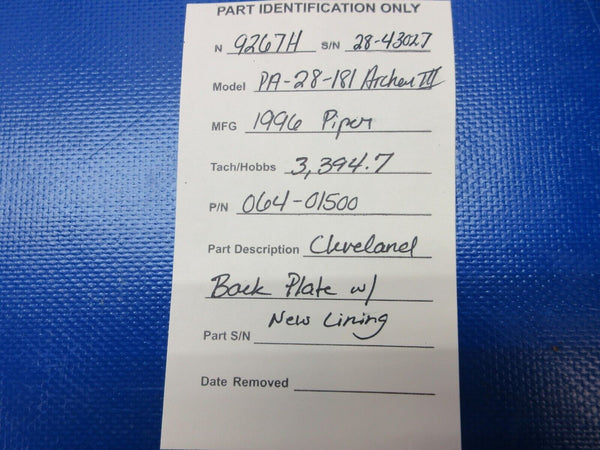 PART IDENTIFICATION ONLY
N 9267H S/N 28-43027
Model PA-28-181 Archer III
MFG 1996 Piper
Tach/Hobbs 3,394.7
P/N 064-01500
Part Description Cleveland
Back Plate w/
New Lining
Part S/N
Date Removed